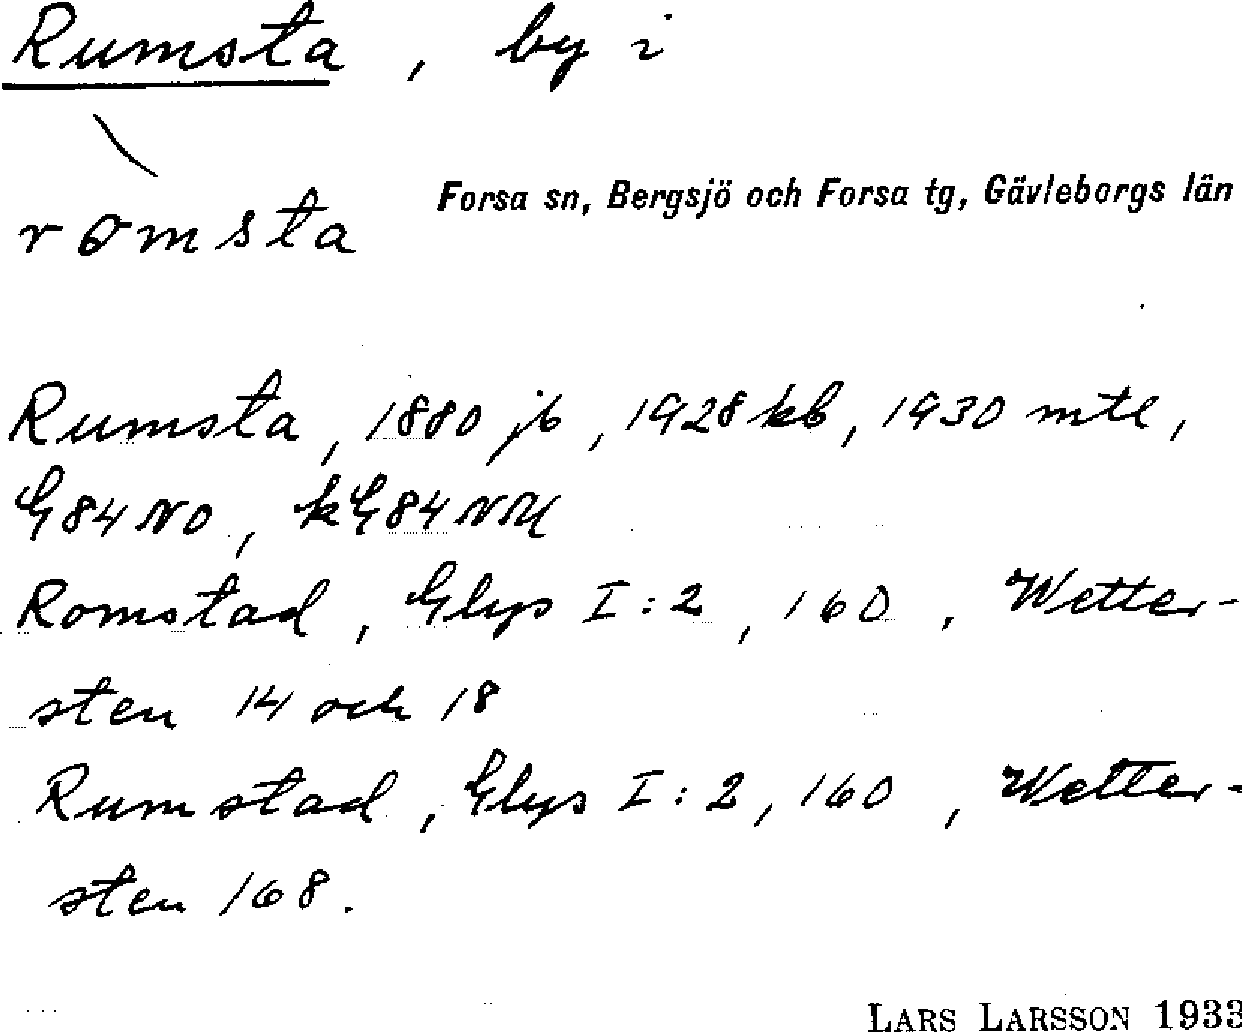 Rumsta, by i
Forsa sn, Bergsjö och Forsa tg, Gävleborgs län
romsta
Rumsta, 1880 jb, 1928 kb, 1930 mtl,
G84NO, kG84NU
Romstad, Glys I:2, 160, Wetter-
sten 14 och 18
Rumstad, Glys I:2, 160, Wetter-
sten 168.
LARS LARSSON 1933